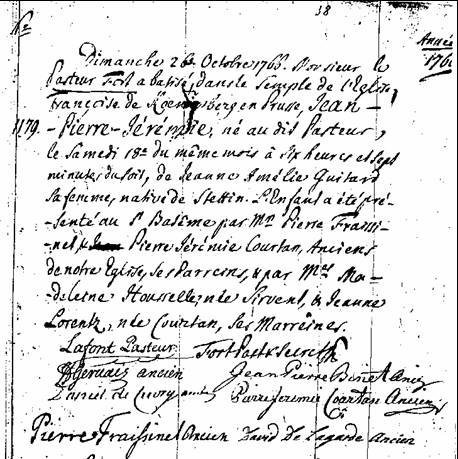 38
No
Année
176
Dimanche 26e Octobre 1766. Monsieur le
Pasteur Fort a batisé, dans le Temple de l'Eglise
françoise de Koenigsberg en Prusse, Jean-
1179.
-Pierre-Jérémie, né au dit Pasteur,
le Samedi 18e du même mois à six heures et sept
minutes du soir, de Jeanne Amélie Guitard
sa femme, native de Stettin. L'Enfant a été pré-
-senté au St Batême par Mrs Pierre Fraissi-
-net, & Pierre Jérémie Courtan, Anciens
de notre Eglise, ses Parreins, & par Mes Ma-
-deleine Housselle, née Sirvent, & Jeanne
Lorentz, née Courtan, ses Marreines.
Lafont Pasteur Fort Past & Secret
Gervais ancien Jean Pierre Binet Anc
Daniel Pierre Jeremie Courtan Ancien
Pierre Fraissinet Ancien David De Lagarde Ancien